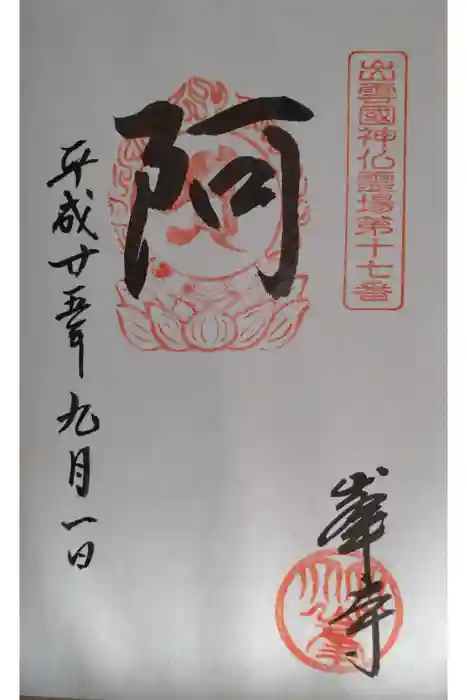 出雲國神仏霊場第十七番
阿
平成廿五年九月一日
峯寺